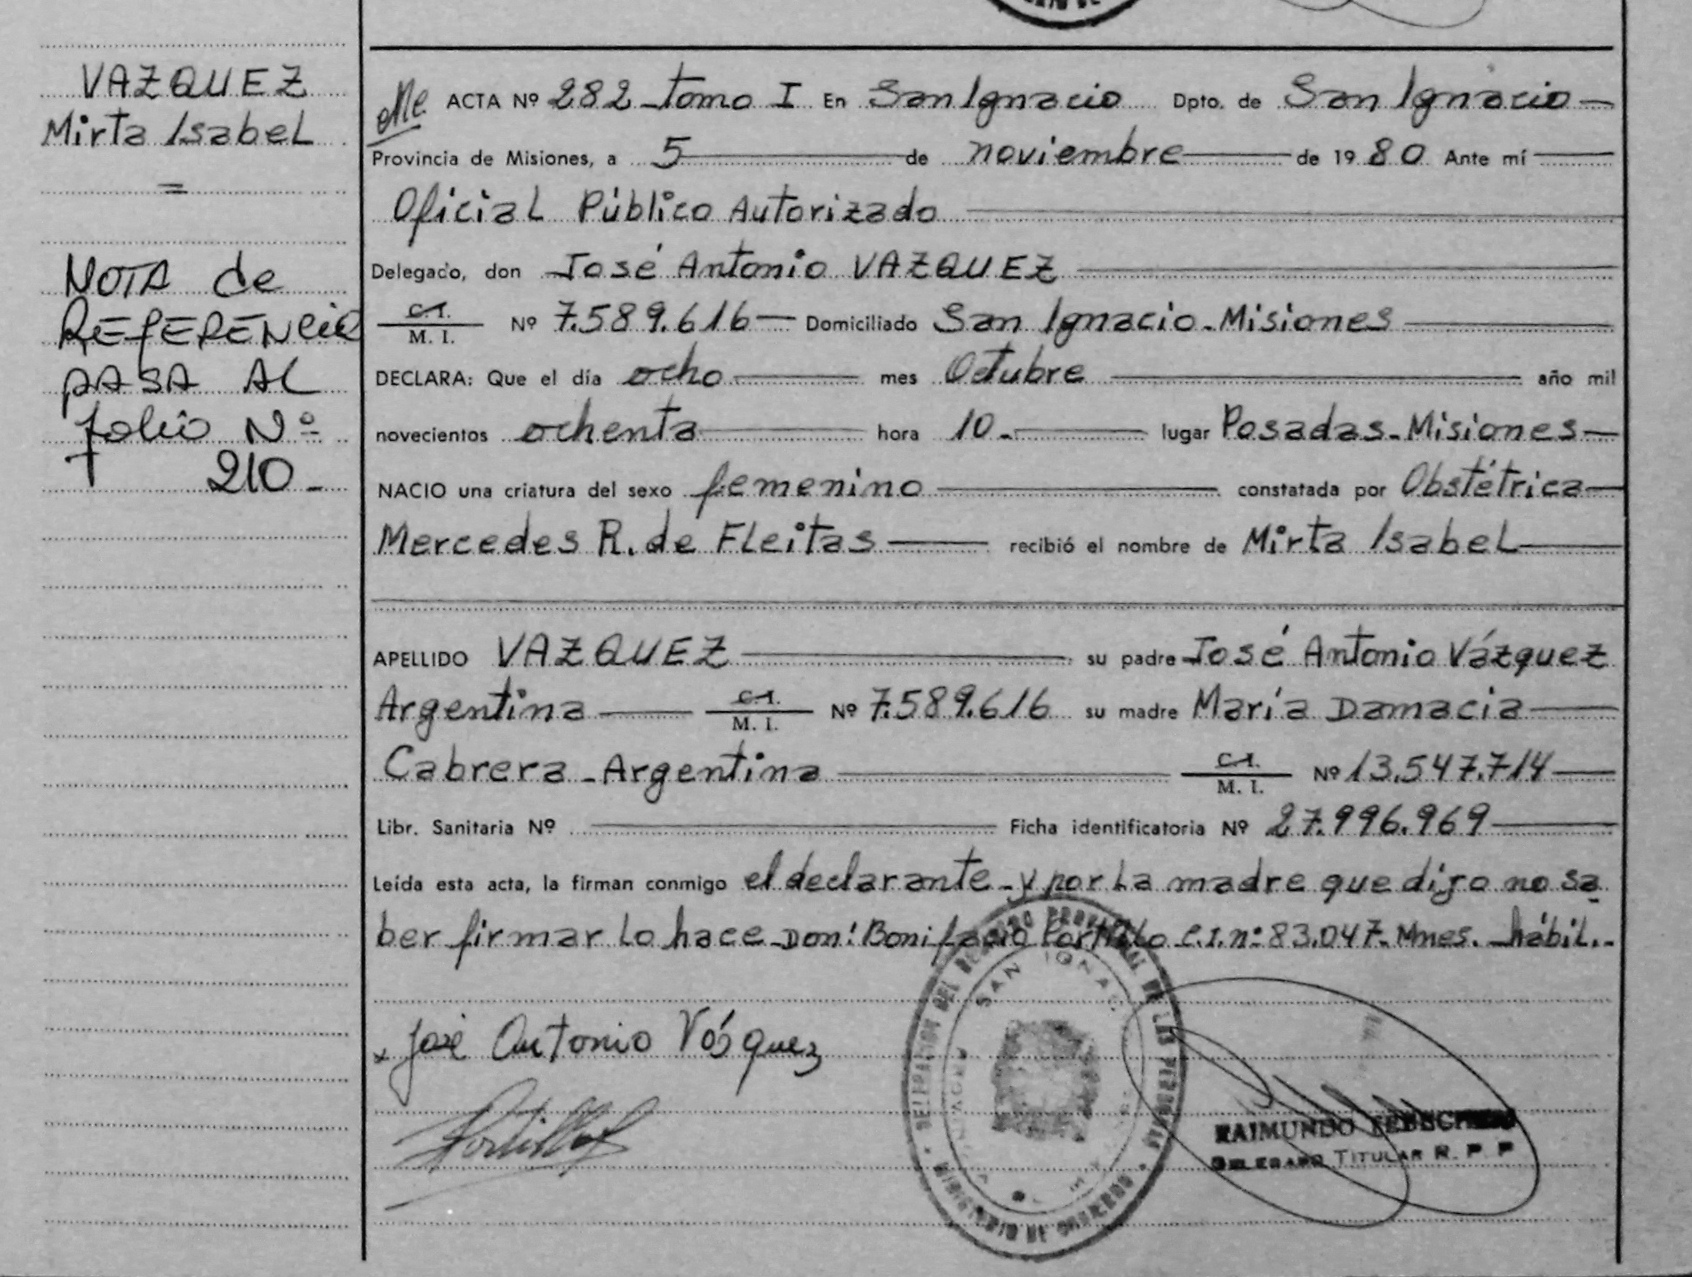 VAZQUEZ
Mirta Isabel
=
NOTA de
REFERENCIA
PASA AL
folio Nº
210-
ACTA Nº 282 tomo I En San Ignacio Dpto. de San Ignacio
Provincia de Misiones, a 5 de noviembre de 1980 Ante mí
Oficial Público Autorizado
Delegado, don José Antonio VAZQUEZ
C.I. / M. I. Nº 7.589.616 Domiciliado San Ignacio-Misiones
DECLARA: Que el día ocho mes Octubre año mil
novecientos ochenta hora 10- lugar Posadas-Misiones
NACIO una criatura del sexo femenino constatada por Obstétrica
Mercedes R. de Fleitas recibió el nombre de Mirta Isabel
APELLIDO VAZQUEZ su padre José Antonio Vázquez
Argentina C.I. / M. I. Nº 7.589.616 su madre María Damacia
Cabrera-Argentina C.I. / M. I. Nº 13.547.714
Libr. Sanitaria Nº Ficha identificatoria Nº 27.996.969
Leída esta acta, la firman conmigo el declarante y por la madre que dijo no sa
ber firmar lo hace Don: Bonifacio Portillo C.I. nº 83.047. Mnes. hábil.-
José Antonio Vásquez
Portillo
SAN IGNACIO
MINISTERIO DE GOBIERNO
RAIMUNDO
DELEGADO TITULAR R. P. P